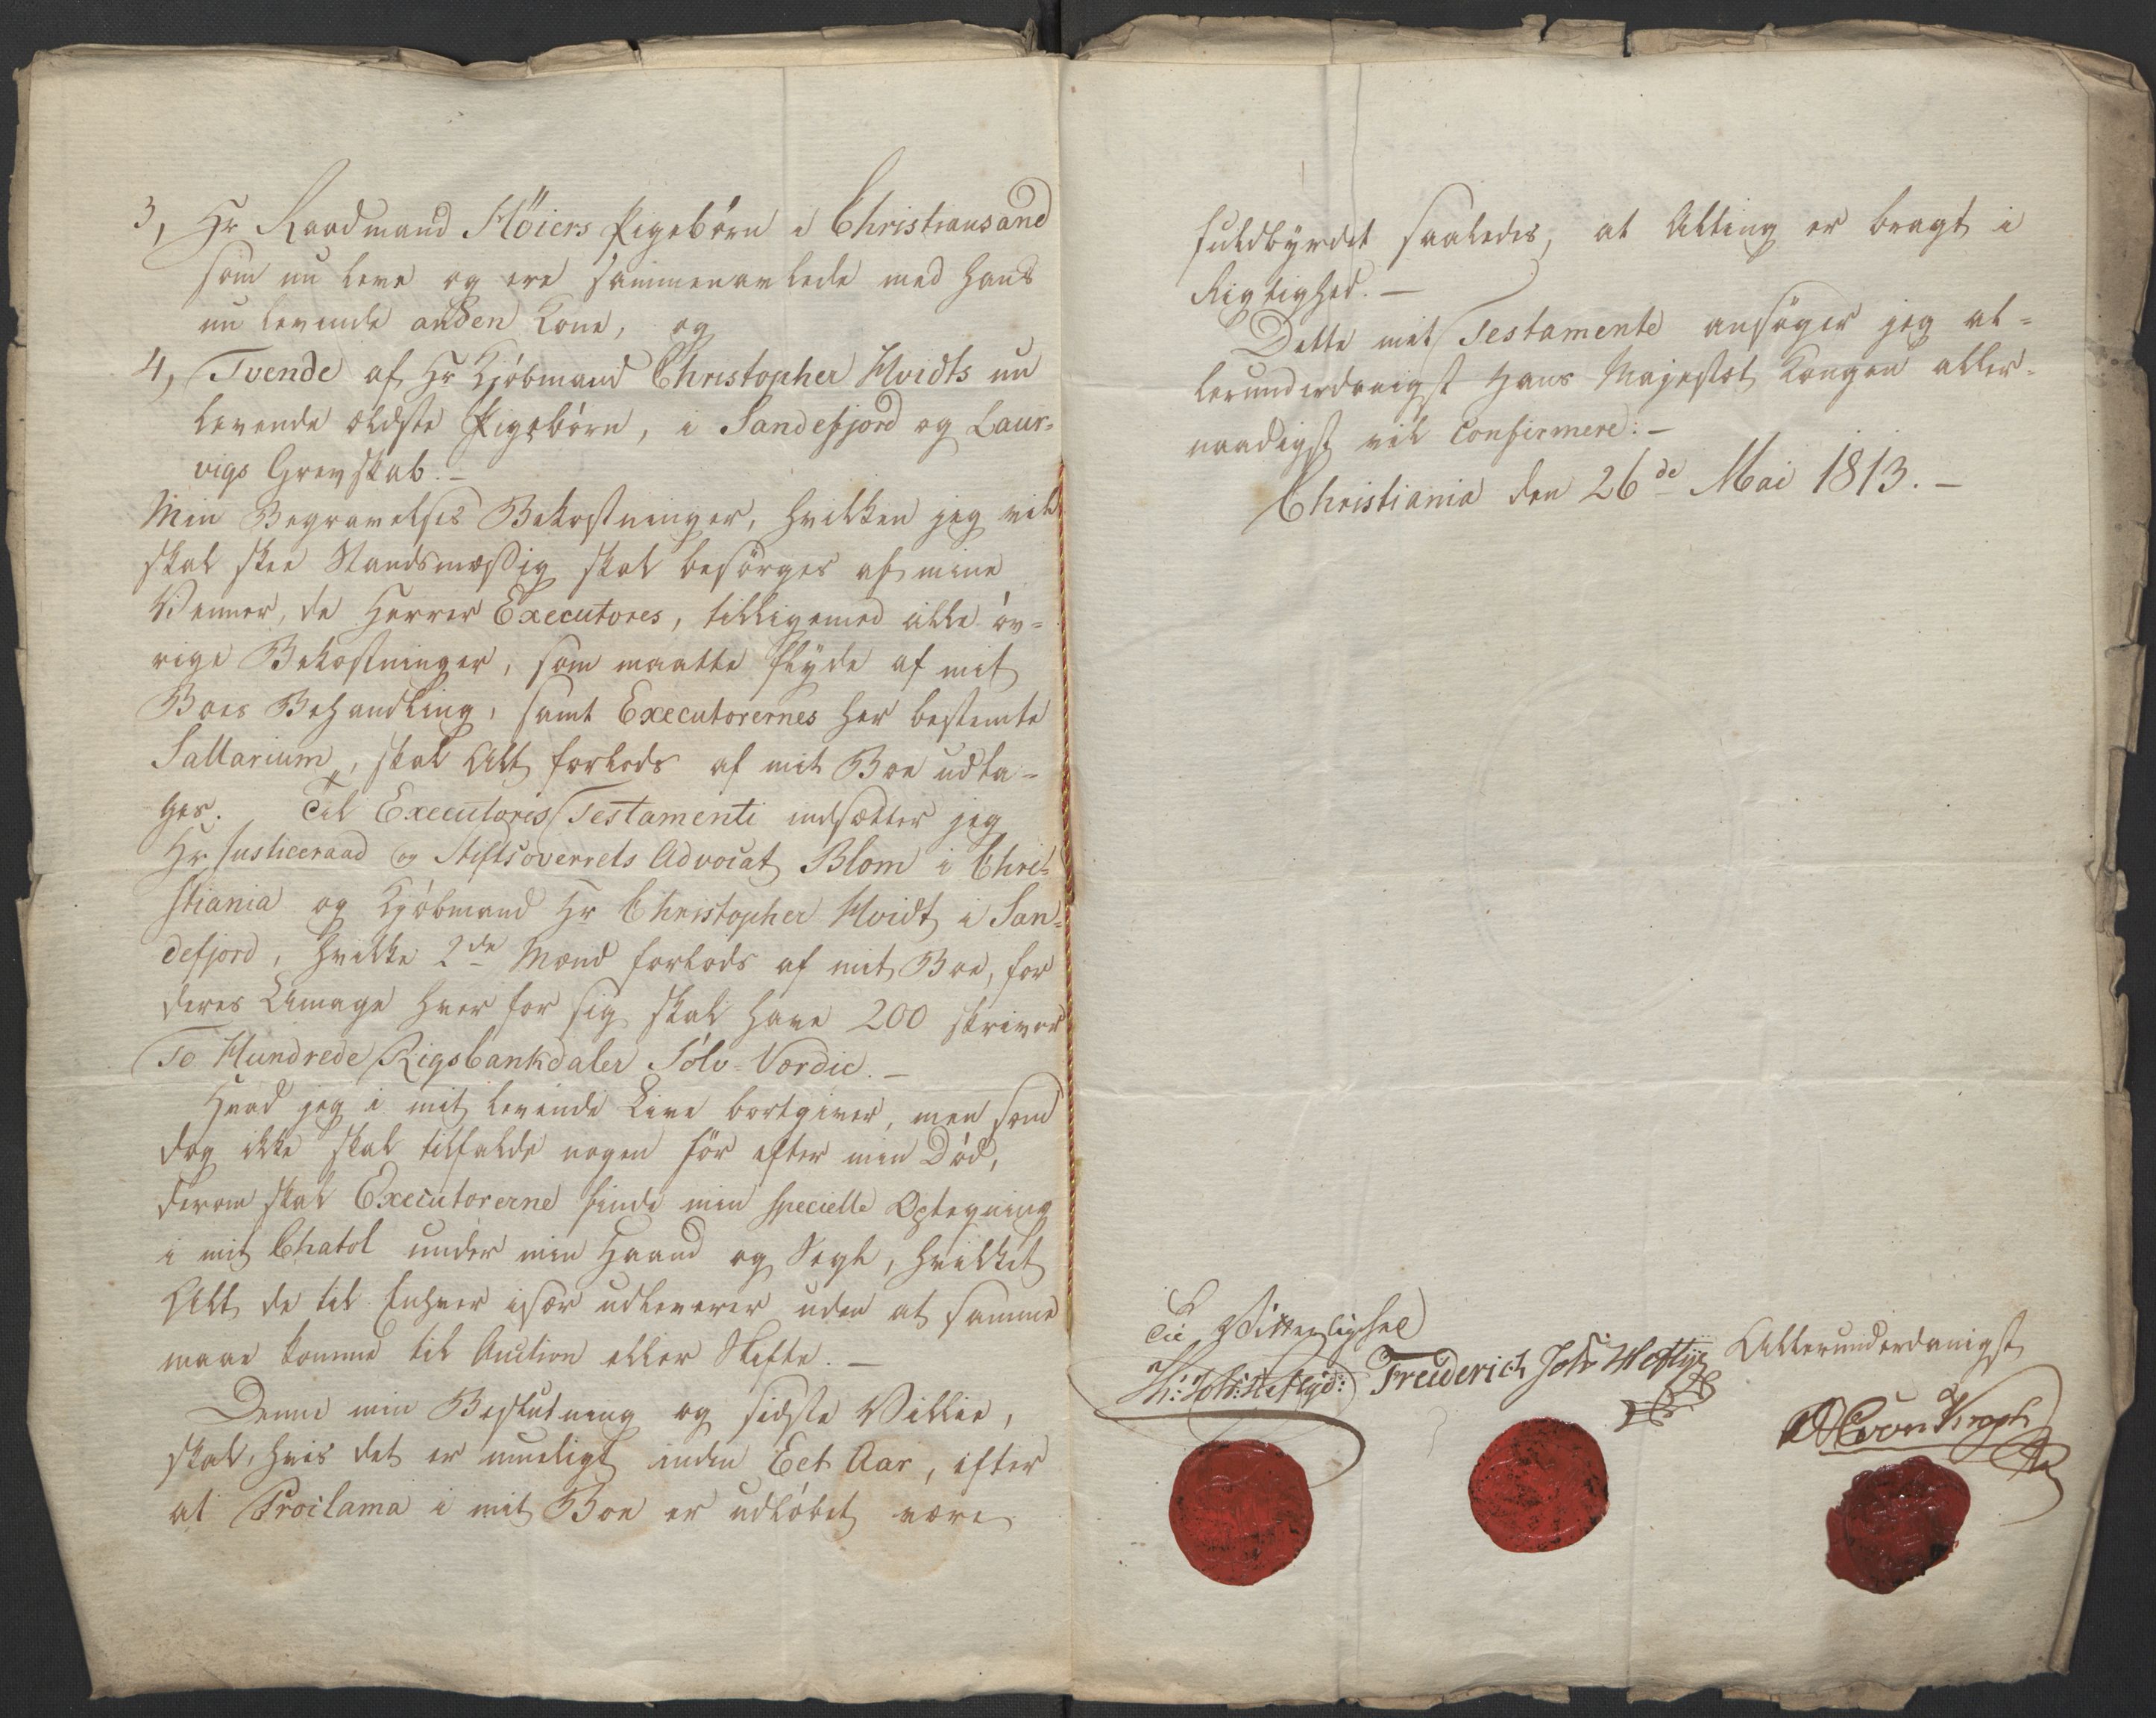 3, Hr Raadmand Höiers Pigebörn i Christiansand
som nu leve og ere sammenavlede med hans
nu levende anden Kone, og
4, Tvende af Hr Kjöbmand Christopher Hvidts nu
levende ældste Pigebörn, i Sandefjord og Laur-
vigs Grevskab. -
Min Begravelses Bekostninger, hvilken jeg vil
skal skee Standsmæssig skal besörges af mine
Venner, de Herrer Executores, tilligemed alle öv-
rige Bekostninger, som maatte flyde af mit
Boes Behandling, samt Executorernes her bestemte
Sallarium, skal Alt forlods af mit Boe udta-
ges. Til Executoris Testamenti indsætter jeg
Hr Justiceraad og Stiftsoverrets Advocat Blom i Chri-
stiania og Kjöbmand Hr Christopher Hvidt i San-
defjord, hvilke 2de Mænd forlods af mit Boe, for
deres Umage hver for sig skal have 200 skriver
To Hundrede Rigsbankdaler Sölv-Værdie. -
Hvad jeg i mit levende Live bortgiver, men som
dog ikke skal tilfalde nogen för efter min Död,
derom skal Executorerne finde min specielle Optegning
i mit Chatol under min Haand og Segl, hvilket
Alt de til Enhver især udleverer uden at samme
maae komme til Auction eller Skifte. -
Denne min Beslutning og sidste Villie,
skal, hvis det er mueligt inden Eet Aar, efter
at Proclama i mit Boe er udlöbet være
fuldbyrdet saaledes, at Alting er bragt i
Rigtighed. -
Dette mit Testamente ansöger jeg al-
lerunderdanigst Hans Majestæt Kongen aller-
naadigst vil Confirmere: -
Christiania den 26de Mai 1813. -
Til Vitterlighed
Th: Joh: Heftye: Freiderich Joh Heftye Allerunderdanigst
von Krogh